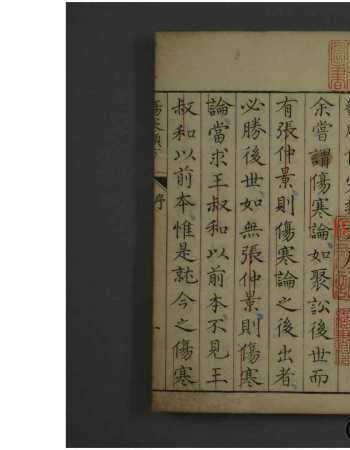 余嘗謂傷寒論如聚訟後世而
有張仲景則傷寒論之後出者
必勝後世如無張仲景則傷寒
論當求王叔和以前本不見王
叔和以前本惟是就今之傷寒
序
一